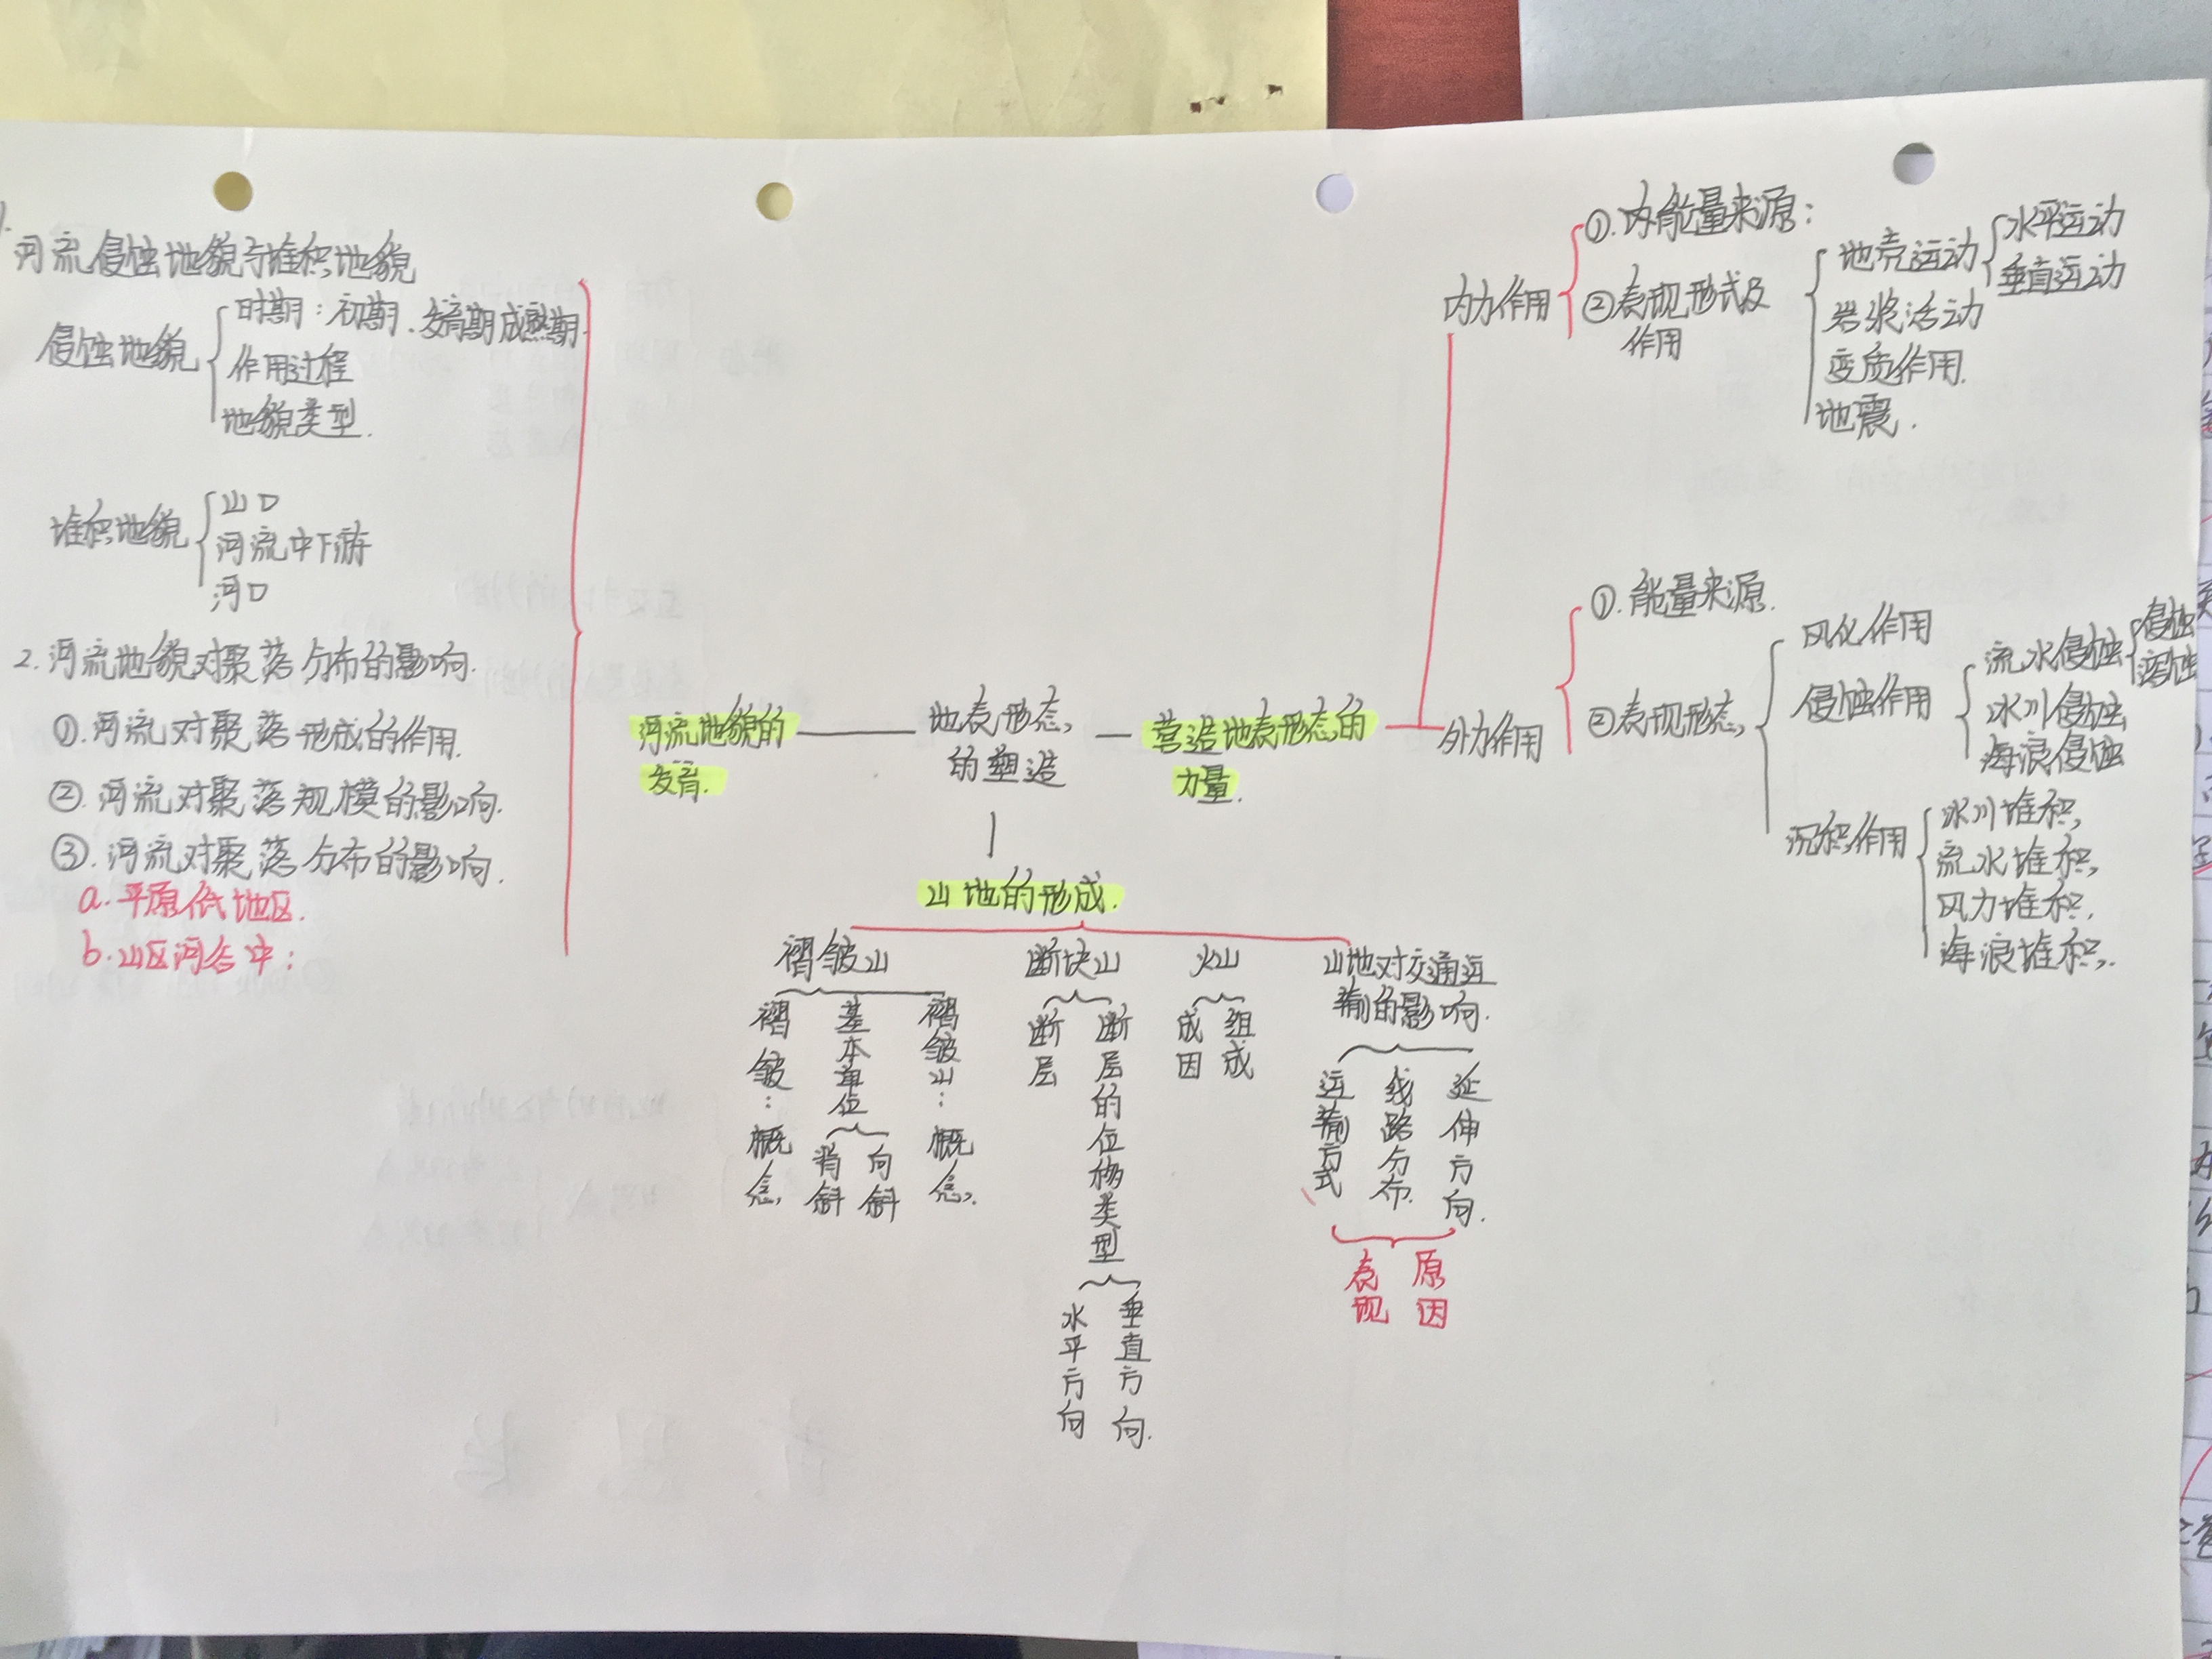 1.
河流侵蚀地貌与堆积地貌
侵蚀地貌
时期：初期、发育期成熟期
作用过程
地貌类型.
堆积地貌
山口
河流中下游
河口
2.河流地貌对聚落分布的影响.
①.河流对聚落形成的作用.
②.河流对聚落规模的影响.
③.河流对聚落分布的影响.
a.平原低地区.
b.山区河谷中：
河流地貌的
发育.
地表形态
的塑造
营造地表形态的
力量.
内力作用
①.内能量来源：
②表现形式及
作用
地壳运动
水平运动
垂直运动
岩浆活动
变质作用.
地震.
外力作用
①.能量来源.
②表现形态
风化作用
侵蚀作用
流水侵蚀
侵蚀
溶蚀
冰川侵蚀
海浪侵蚀
沉积作用
冰川堆积
流水堆积
风力堆积.
海浪堆积.
山地的形成.
褶皱山
褶皱：概念
基本单位
背斜
向斜
褶皱山：概念.
断块山
断层
断层的位移类型
水平方向
垂直方向.
火山
成因
组成
山地对交通运
输的影响.
运输方式
线路分布.
延伸方向.
表现
原因